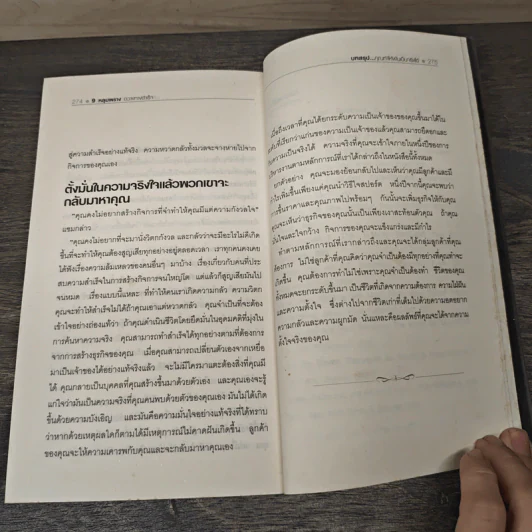 274 • 9 หลุมพราง
สู่ความสำเร็จอย่างแท้จริง ความหวาดกลัวทั้งมวลจะจางหายไปจาก
กิจการของคุณเอง
ตั้งมั่นในความจริงใจแล้วพวกเขาจะ
กลับมาหาคุณ
"คุณคงไม่อยากสร้างกิจการที่จำทำให้คุณมีแต่ความกังวลใจ"
แซมกล่าว
"คุณคงไม่อยากที่จะมานั่งวิตกกังวล และกลัวว่าจะมีอะไรไม่ดีเกิด
ขึ้นที่จะทำให้คุณต้องสูญเสียทุกอย่างอยู่ตลอดเวลา เราทุกคนคงเคย
ได้ฟังเรื่องความล้มเหลวของคนอื่นๆ มาบ้าง เรื่องเกี่ยวกับคนที่ประ
สบความสำเร็จในการสร้างกิจการจนใหญ่โต แต่แล้วก็สูญเสียมันไป
จนหมด เรื่องแบบนี้แหละ ที่ทำให้คนเราเกิดความกลัว ความวิตก
คุณจะทำให้สำเร็จไม่ได้ถ้าคุณเอาแต่หวาดกลัว คุณจำเป็นที่จะต้อง
เข้าใจอย่างถ่องแท้ว่า ถ้าคุณดำเนินชีวิตโดยยึดมั่นในอุดมคติที่มุ่งใน
การค้นหาความจริง คุณสามารถทำสำเร็จได้ทุกอย่างตามที่ต้องการ
จากการสร้างธุรกิจของคุณ เมื่อคุณสามารถเปลี่ยนตัวเองจากเหยื่อ
มาเป็นเจ้าของได้อย่างแท้จริงแล้ว จะไม่มีใครมาแตะต้องสิ่งที่คุณมี
ได้ คุณกลายเป็นบุคคลที่คุณสร้างขึ้นมาด้วยตัวเอง และคุณเองจะรู้
แก่ใจว่ามันเป็นความจริงที่คุณค้นพบด้วยตัวของคุณเอง มันไม่ได้เกิด
ขึ้นด้วยความบังเอิญ และมันคือความมั่นใจอย่างแท้จริงที่ได้ทราบ
ว่าหากด้วยเหตุผลใดก็ตามได้มีเหตุการณ์ไม่คาดฝันเกิดขึ้น ลูกค้า
ของคุณจะให้ความเคารพกับคุณและจะกลับมาหาคุณเอง
บทสรุป... • 275
เมื่อถึงเวลาที่คุณได้ยกระดับความเป็นเจ้าของของคุณขึ้นมาได้ใน
ระดับที่เรียกว่าแก่นของความเป็นเจ้าของแล้วคุณสามารถยืดอกและ
ความเป็นจริงได้ ความจริงที่คุณจะเข้าใจภายในหนึ่งปีของการ
บริหารงานตามหลักการที่เราได้กล่าวถึงในหนังสือนี้ทั้งหมด
ทุกตัวอย่าง คุณจะมองย้อนกลับไปและเห็นว่าคุณมีลูกค้าและมี
กำไรเพิ่มขึ้นเพียงแค่คุณนำวิธีใจสปอร์ต หนึ่งปีจากนั้นคุณจะพบว่า
การขึ้นราคาและคุณภาพไปพร้อมๆ กันนั้น จะเพิ่มธุรกิจให้กับคุณ
คุณจะเห็นว่าธุรกิจของคุณนั้นเป็นเพียงเงาสะท้อนตัวคุณ ถ้าคุณ
มั่นใจและใจกว้าง กิจการของคุณจะแข็งแกร่งและมีกำไร
ทำตามหลักการที่เรากล่าวถึงและคุณจะได้กลุ่มลูกค้าที่คุณ
ต้องการ ไม่ใช่ลูกค้าที่คุณคิดว่าคุณจำเป็นต้องมีทุกอย่างที่คุณเห็นจะ
เกิดขึ้น คุณต้องการทำไม่ใช่เพราะคุณจำเป็นต้องทำ ชีวิตของคุณ
ทั้งหมดจะยกระดับขึ้นมา เป็นชีวิตที่เกิดจากความต้องการ ความใฝ่ฝัน
และความตั้งใจ ซึ่งต่างไปจากชีวิตเก่าที่เต็มไปด้วยความอดอยาก
ความกลัวและความผูกมัด นั่นแหละคือผลลัพธ์ที่คุณจะได้จากความ
ตั้งใจจริงของคุณ